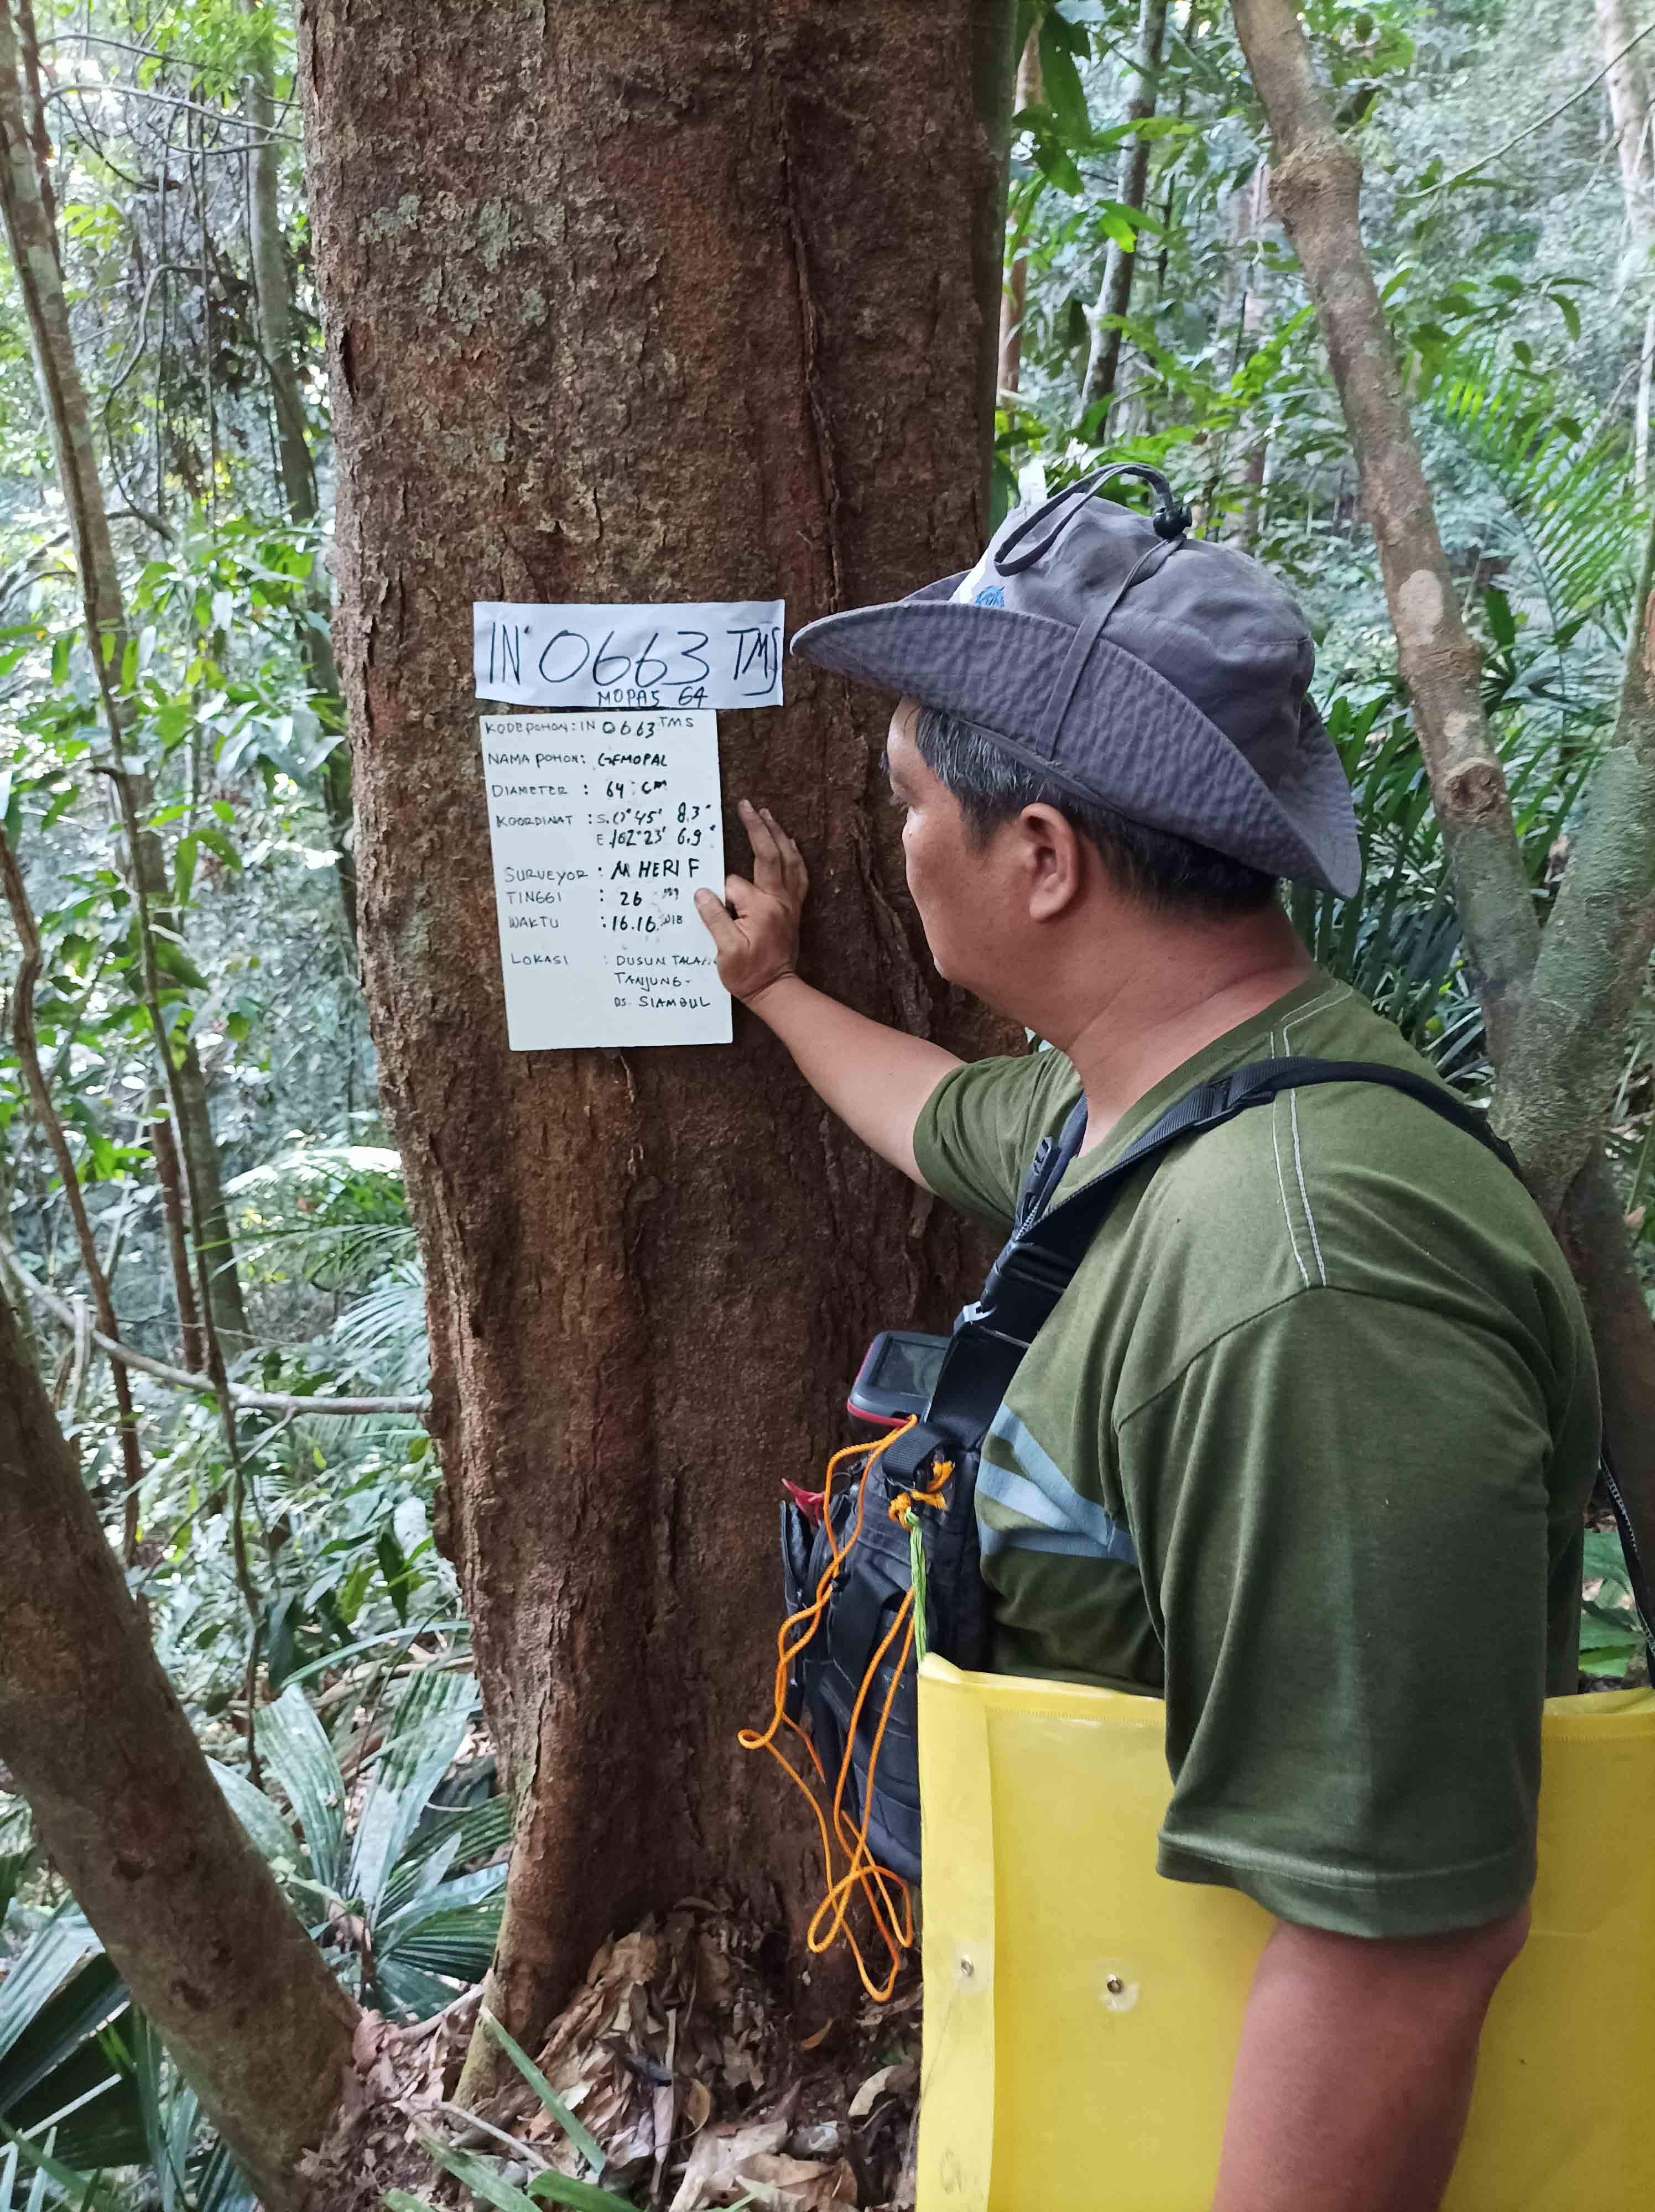 IN 0663 TMS
MOPAS 64
KODE POHON: IN 0663 TMS
NAMA POHON: GEMOPAL
DIAMETER : 64 CM
KOORDINAT : S. 0° 45' 8.3"
E. 102° 23' 6.9"
SURVEYOR : M HERI F
TINGGI : 26 M
WAKTU : 16.16 WIB
LOKASI : DUSUN TALAN
TANJUNG-
DS. SIAMBUL